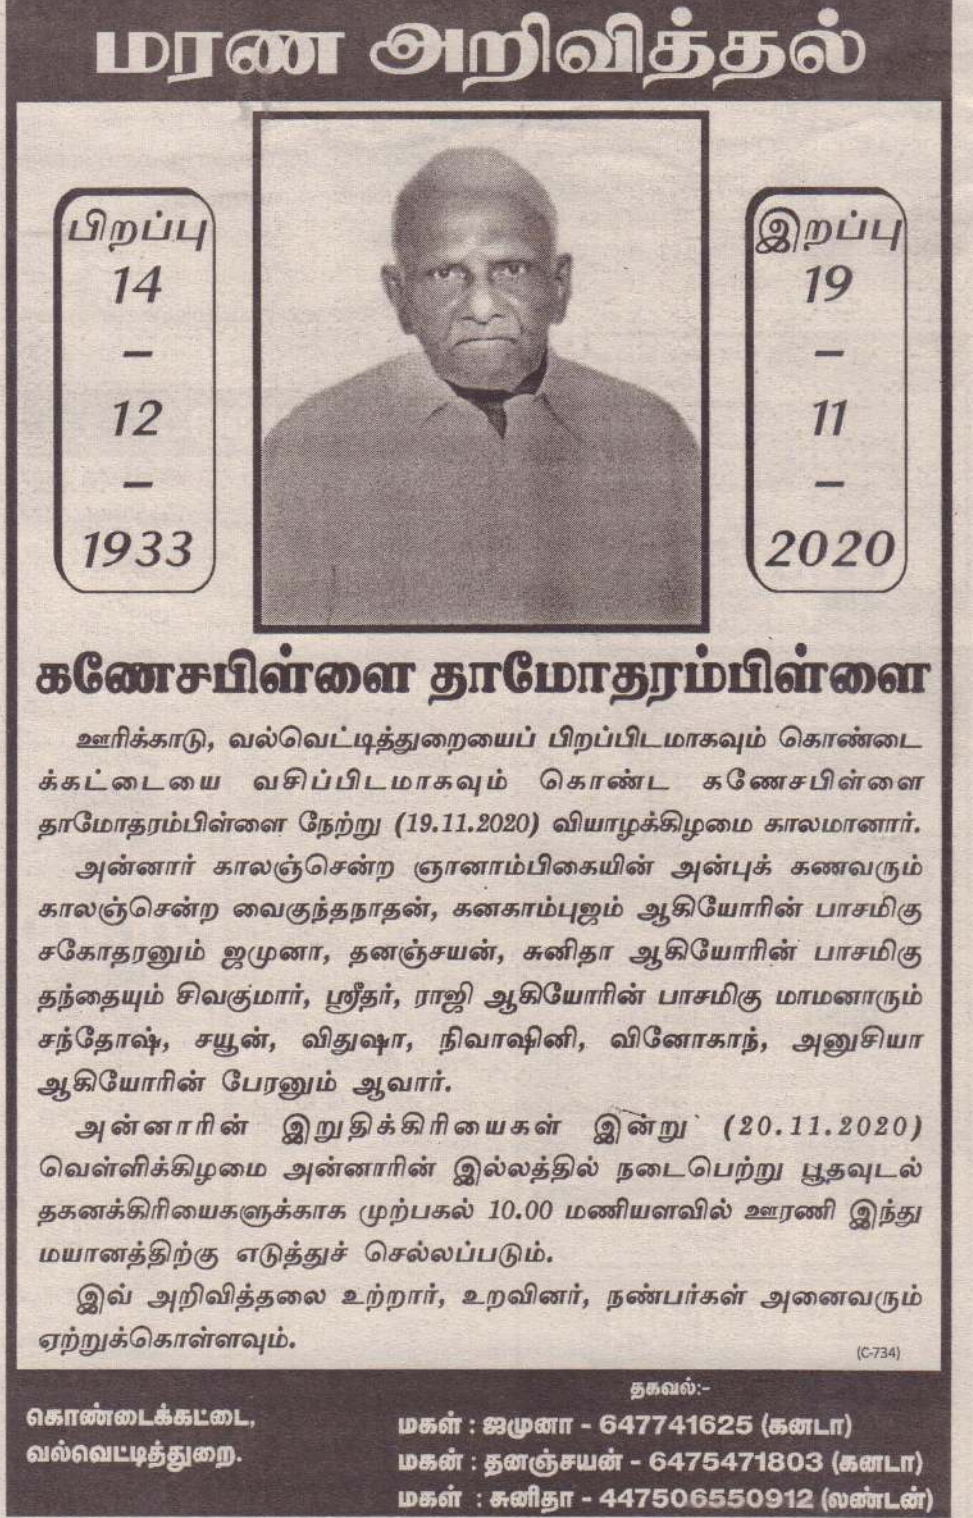 மரண அறிவித்தல்
பிறப்பு
14
–
12
–
1933
இறப்பு
19
–
11
–
2020
கணேசபிள்ளை தாமோதரம்பிள்ளை
ஊரிக்காடு, வல்வெட்டித்துறையைப் பிறப்பிடமாகவும் கொண்டை
க்கட்டையை வசிப்பிடமாகவும் கொண்ட கணேசபிள்ளை
தாமோதரம்பிள்ளை நேற்று (19.11.2020) வியாழக்கிழமை காலமானார்.
அன்னார் காலஞ்சென்ற ஞானாம்பிகையின் அன்புக் கணவரும்
காலஞ்சென்ற வைகுந்தநாதன், கனகாம்புஜம் ஆகியோரின் பாசமிகு
சகோதரனும் ஜமுனா, தனஞ்சயன், சுனிதா ஆகியோரின் பாசமிகு
தந்தையும் சிவகுமார், ஸ்ரீதர், ராஜி ஆகியோரின் பாசமிகு மாமனாரும்
சந்தோஷ், சயூன், விதுஷா, நிவாஷினி, வினோகாந், அனுசியா
ஆகியோரின் பேரனும் ஆவார்.
அன்னாரின் இறுதிக்கிரியைகள் இன்று (20.11.2020)
வெள்ளிக்கிழமை அன்னாரின் இல்லத்தில் நடைபெற்று பூதவுடல்
தகனக்கிரியைகளுக்காக முற்பகல் 10.00 மணியளவில் ஊரணி இந்து
மயானத்திற்கு எடுத்துச் செல்லப்படும்.
இவ் அறிவித்தலை உற்றார், உறவினர், நண்பர்கள் அனைவரும்
ஏற்றுக்கொள்ளவும்.
(C-734)
கொண்டைக்கட்டை,
வல்வெட்டித்துறை.
தகவல்:-
மகள் : ஜமுனா - 647741625 (கனடா)
மகன் : தனஞ்சயன் - 6475471803 (கனடா)
மகள் : சுனிதா - 447506550912 (லண்டன்)